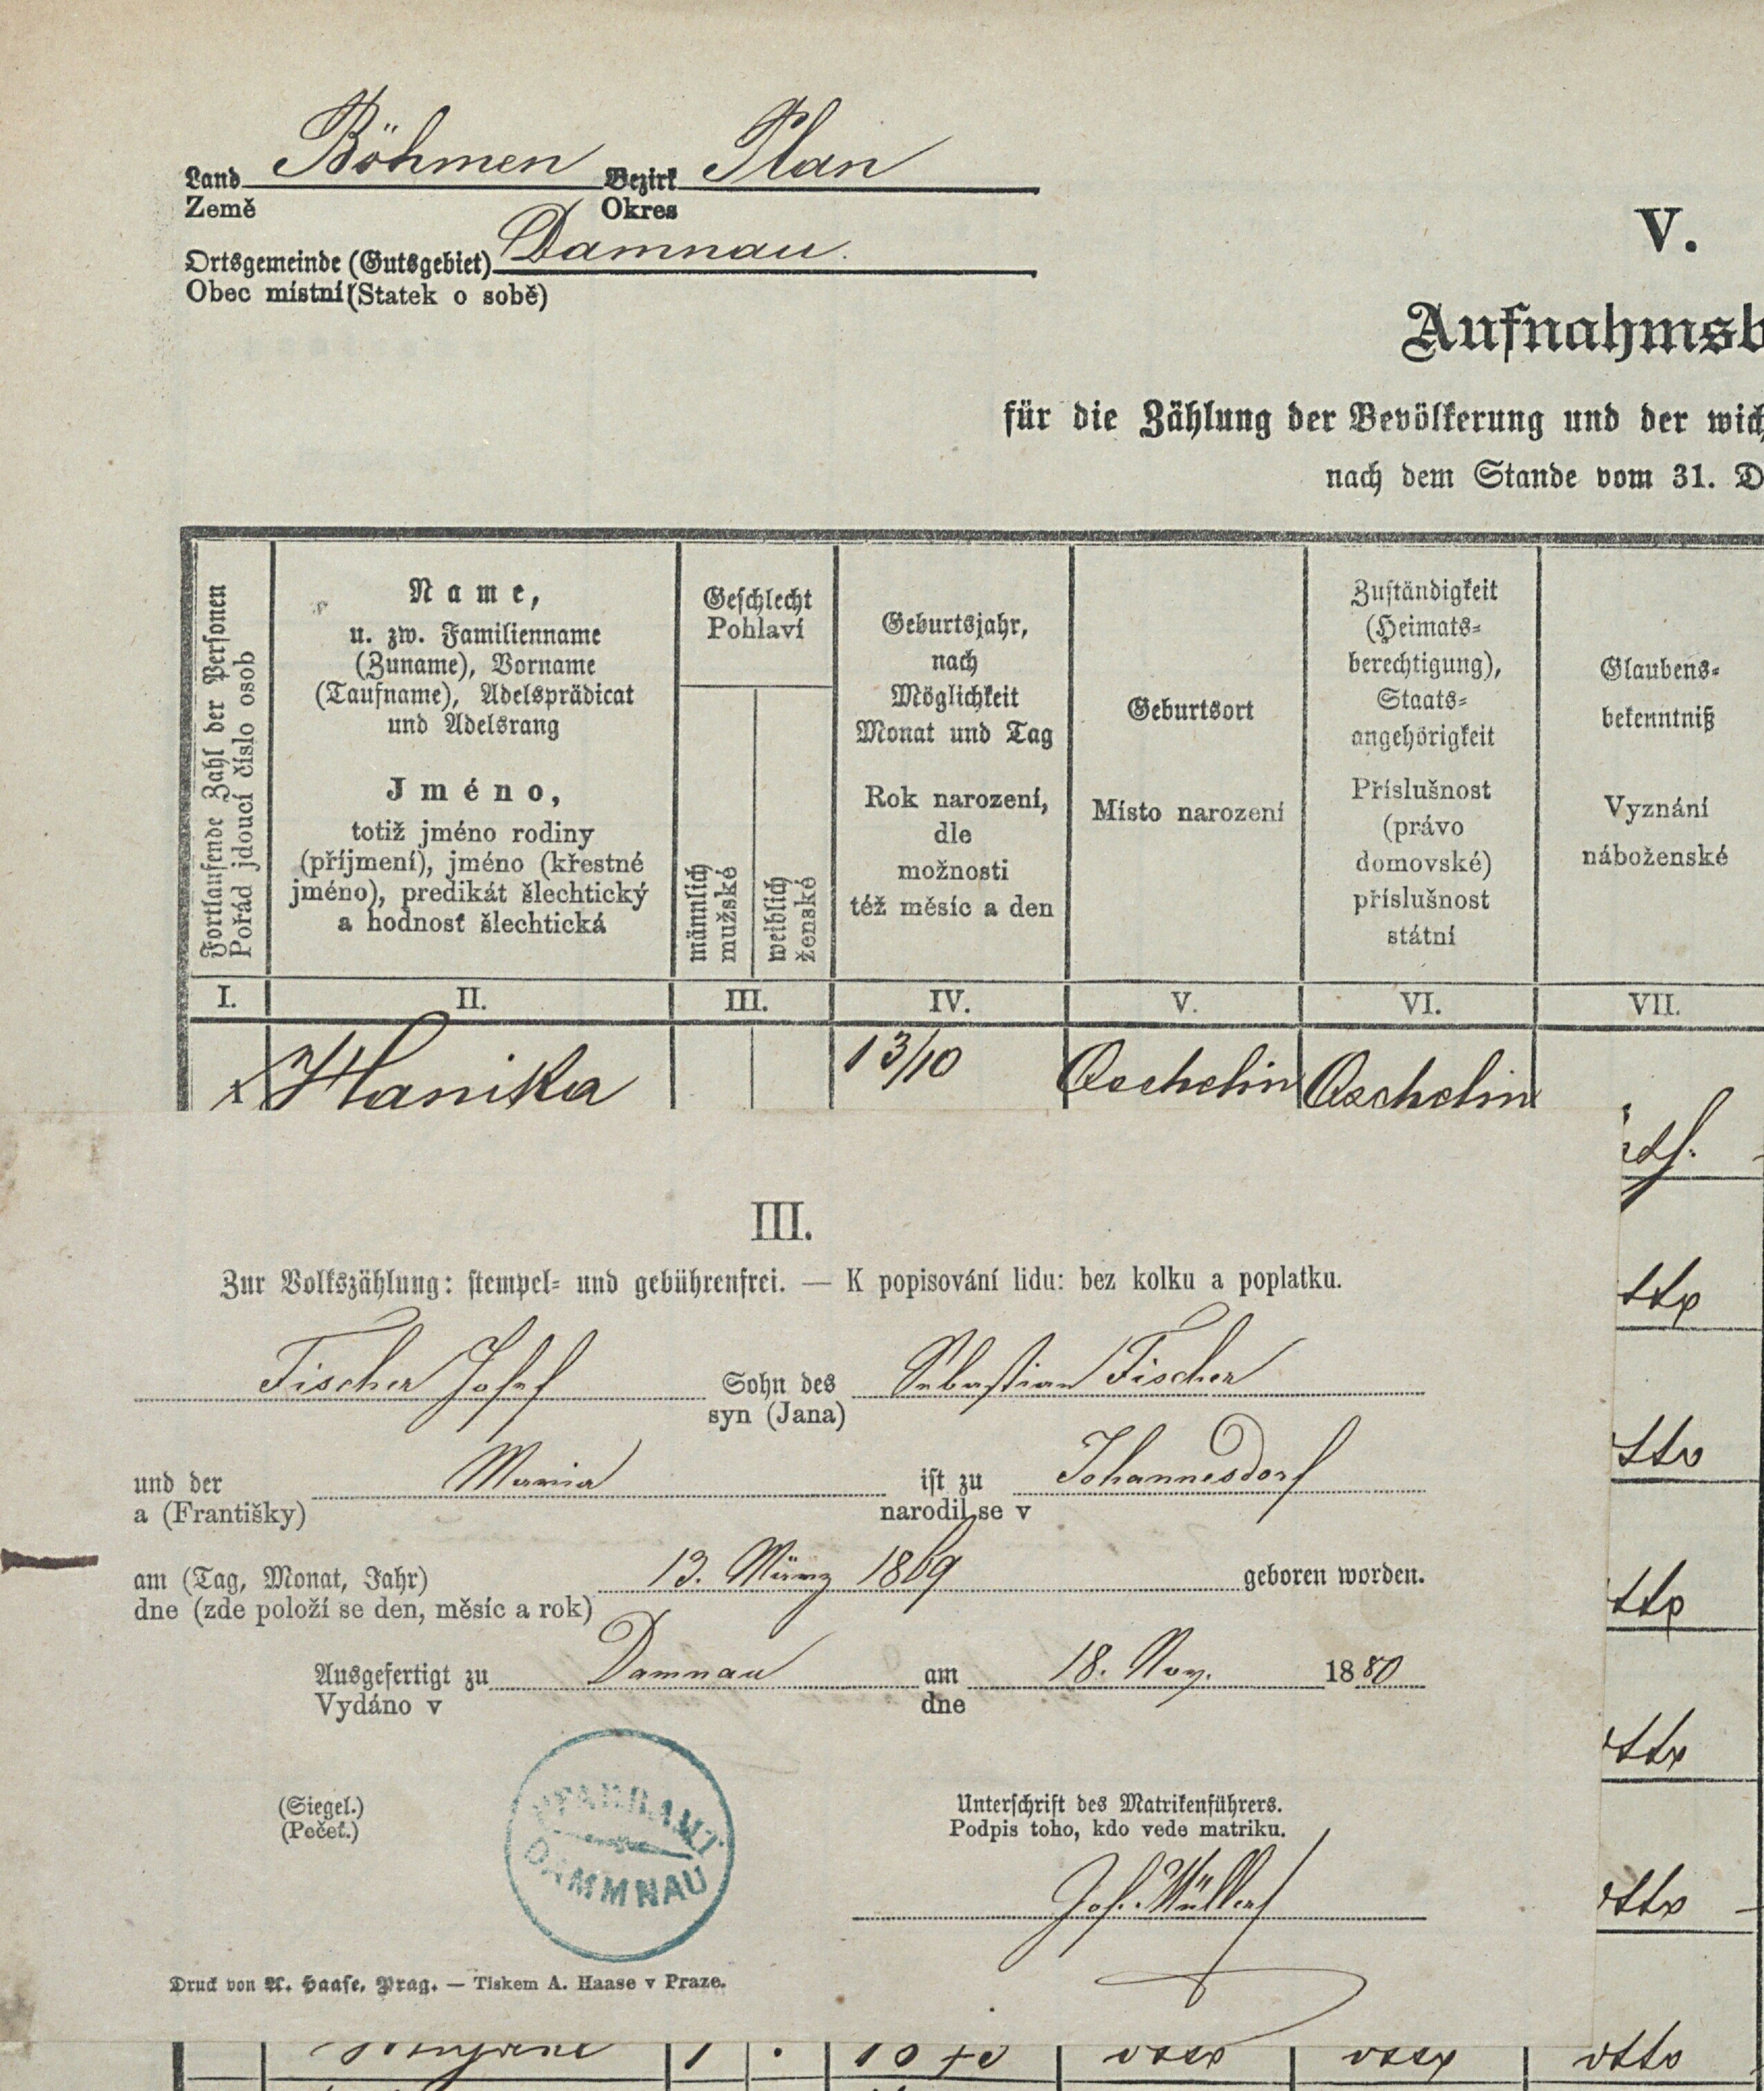 Land Böhmen Bezirk Plan
Země Okres
Ortsgemeinde (Gutsgebiet) Damnau.
Obec místní (Statek o sobě)
V.
Aufnahmsb
für die Zählung der Bevölkerung und der wich
nach dem Stande vom 31. D
Fortlaufende Zahl der Personen
Pořád jdoucí číslo osob
Name,
u. zw. Familienname
(Zuname), Vorname
(Taufname), Adelsprädicat
und Adelsrang
Jméno,
totiž jméno rodiny
(příjmení), jméno (křestné
jméno), predikát šlechtický
a hodnosť šlechtická
Geschlecht
Pohlaví
männlich
mužské
weiblich
ženské
Geburtsjahr,
nach
Möglichkeit
Monat und Tag
Rok narození,
dle
možnosti
též měsíc a den
Geburtsort
Místo narození
Zuständigkeit
(Heimats-
berechtigung),
Staats-
angehörigkeit
Příslušnost
(právo
domovské)
příslušnost
státní
Glaubens-
bekenntniß
Vyznání
náboženské
I. II. III. IV. V. VI. VII.
1 Hanika 13/10 Oschelin Oschelin
III.
Zur Volkszählung: stempel- und gebührenfrei. — K popisování lidu: bez kolku a poplatku.
Fischer Josef Sohn des Sebastian Fischer
syn (Jana)
und der Maria ist zu Johannesdorf
a (Františky) narodil se v
am (Tag, Monat, Jahr) 13. März 1869 geboren worden.
dne (zde položí se den, měsíc a rok)
Ausgefertigt zu Damnau am 18. Nov. 1880
Vydáno v dne
(Siegel.)
(Pečeť.)
PFARRAMT
DAMMNAU
Unterschrift des Matrikenführers.
Podpis toho, kdo vede matriku.
Jos. Müller
Druck von A. Haase, Prag. — Tiskem A. Haase v Praze.